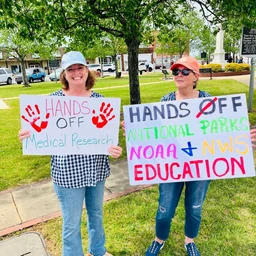 HANDS
OFF
Medical Research
HANDS OFF
NATIONAL PARKS
NOAA + NWS
EDUCATION